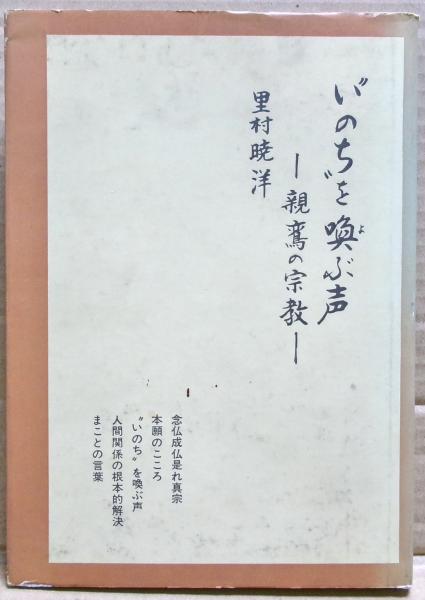 〝いのち〟を喚ぶ声
よ
―親鸞の宗教―
里村暁洋
念仏成仏是れ真宗
本願のこころ
〝いのち〟を喚ぶ声
人間関係の根本的解決
まことの言葉